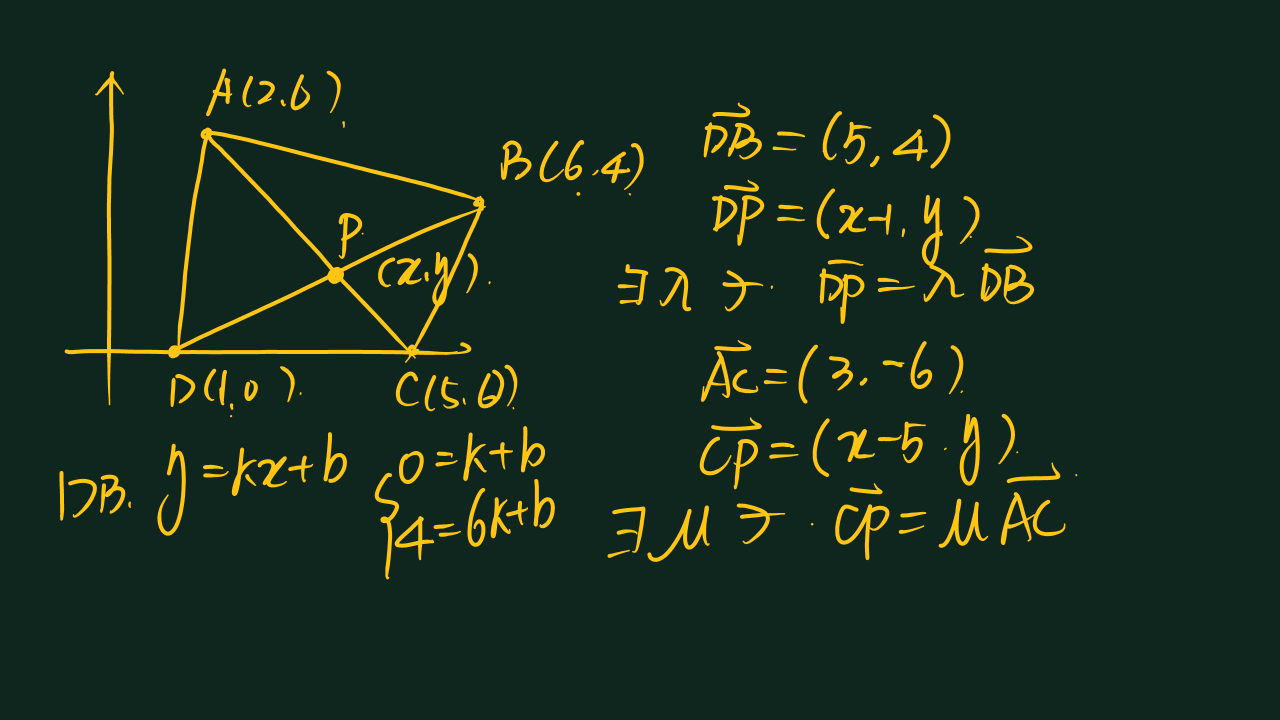 A(2,6)
B(6,4)
P
(x,y)
D(1,0)
C(5,0)
DB. y=kx+b
{0=k+b
4=6k+b
\overrightarrow{DB}=(5,4)
\overrightarrow{DP}=(x-1,y)
∃λ \overrightarrow{DP}=λ\overrightarrow{DB}
\overrightarrow{AC}=(3,-6)
\overrightarrow{CP}=(x-5,y)
∃μ \overrightarrow{CP}=μ\overrightarrow{AC}